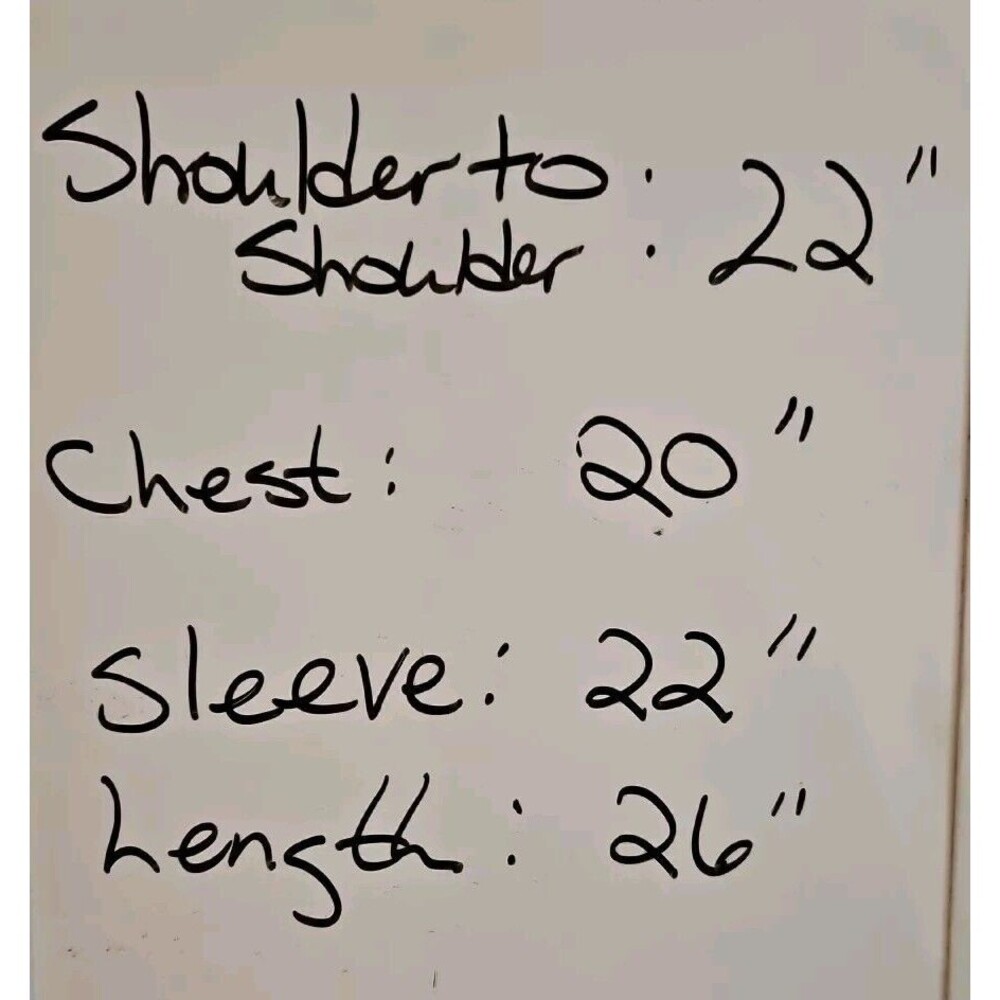 Shoulder to : 22"
Shoulder
Chest: 20"
Sleeve: 22"
Length: 26"